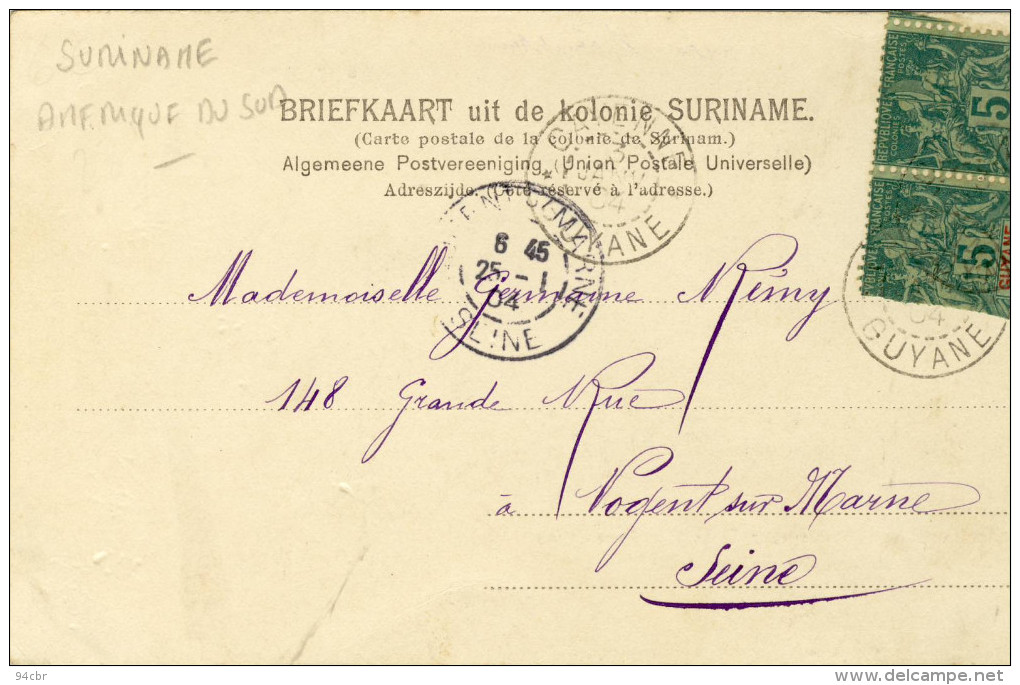 SURINAME
AMERIQUE DU SUD
BRIEFKAART uit de kolonie SURINAME.
(Carte postale de la colonie de Surinam.)
Algemeene Postvereeniging (Union Postale Universelle)
Adreszijde. (Côté réservé à l'adresse.)
RÉPUBLIQUE FRANÇAISE
POSTES
5
5
GUYANE
CAYENNE
3
04
GUYANE
04
GUYANE
NOGENT-S-MARNE
6 45
25 - 1
04
SEINE
Mademoiselle Germaine Rémy
148 Grande Rue
à Nogent sur Marne
Seine
94cbr
www.delcampe.net